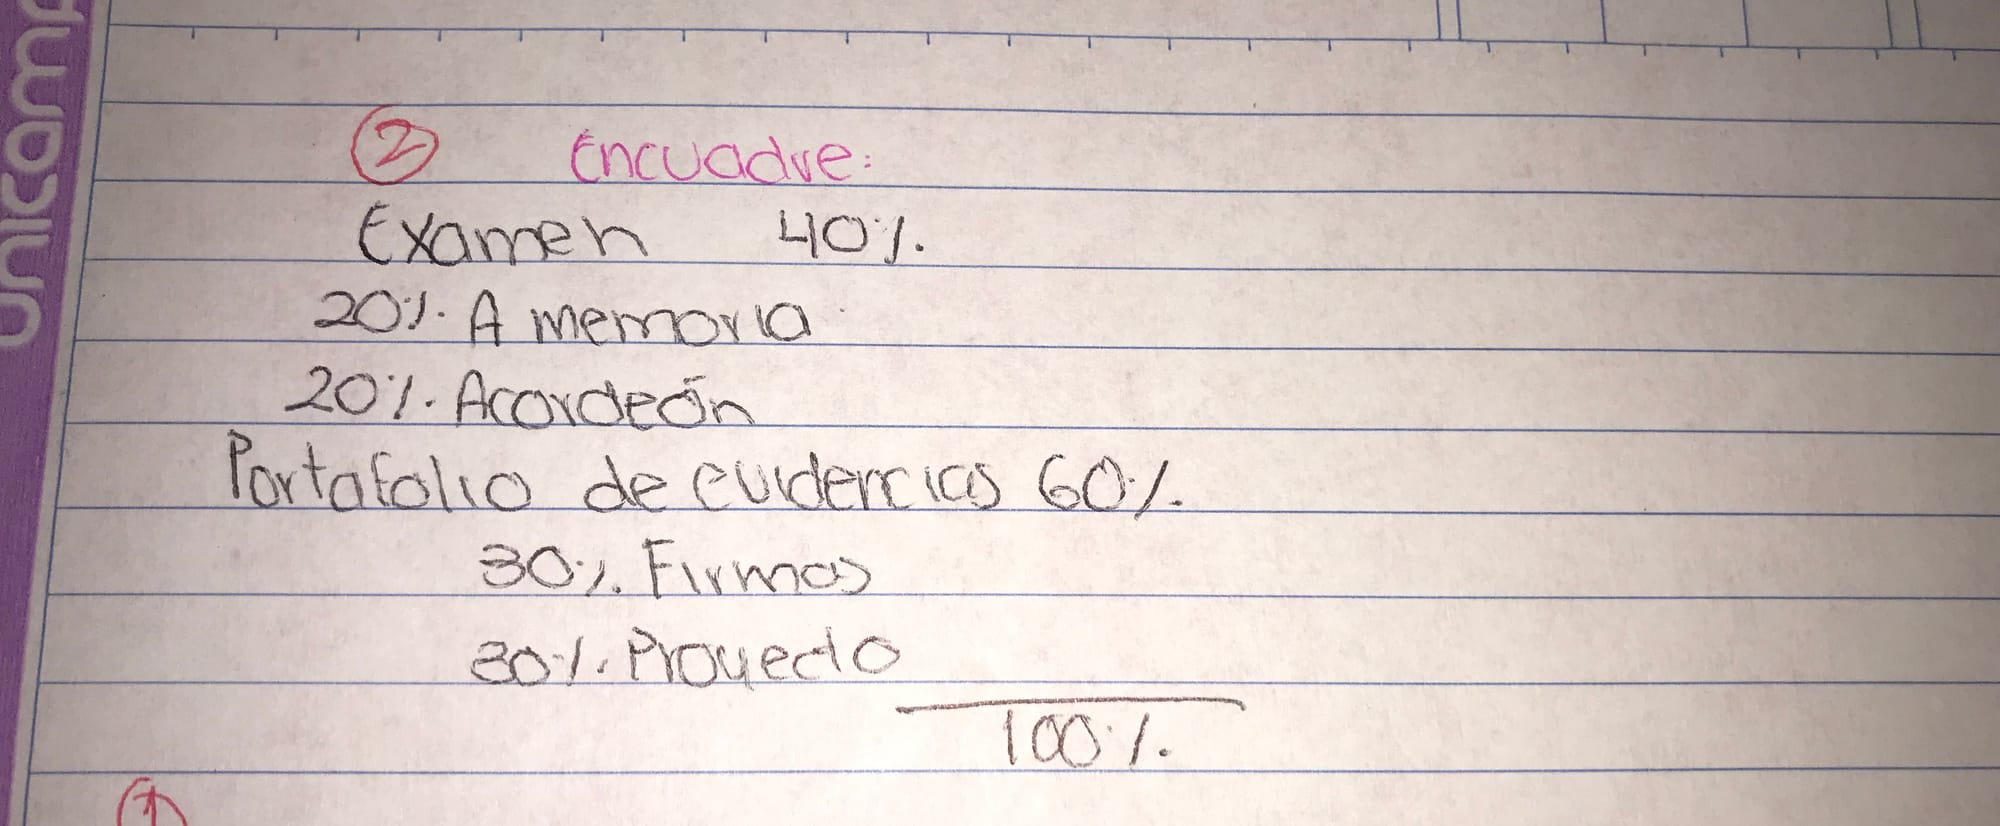 unicam
② Encuadre:
Examen 40%.
20%. A memoria
20%. Acordeón
Portafolio de evidencias 60%.
30%. Firmas
30%. Proyecto
100%.
①